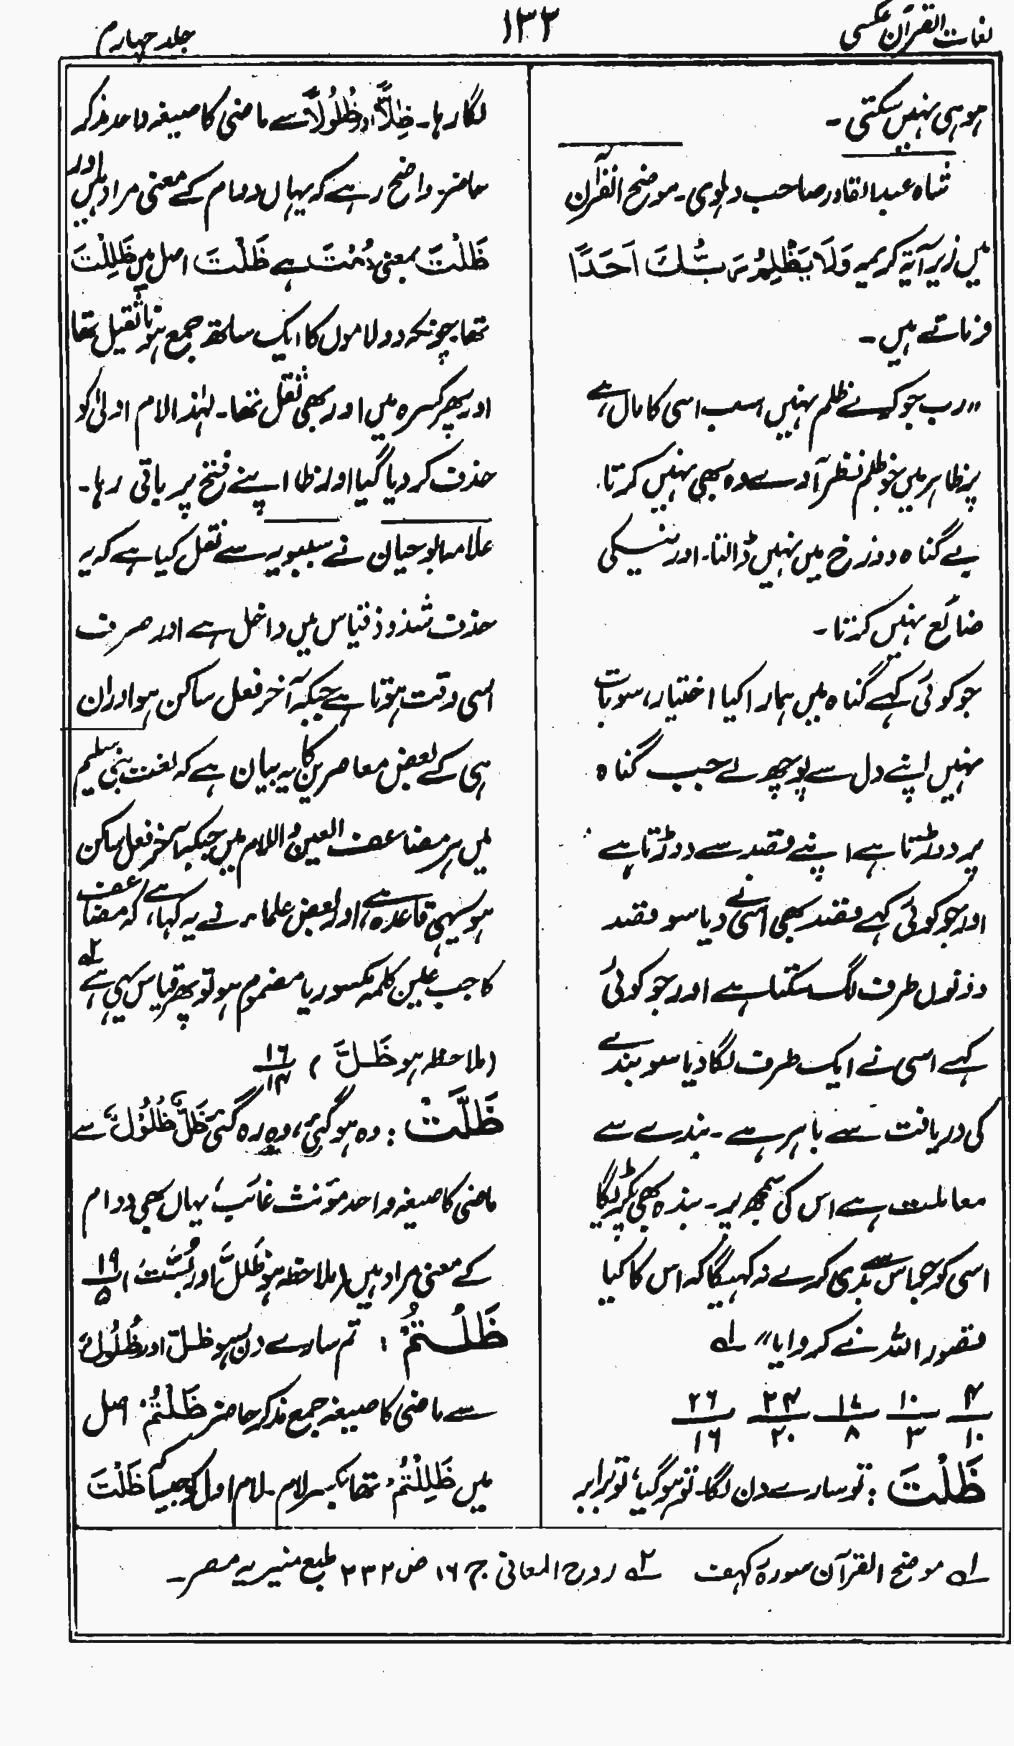 لغات القرآن عکسی
۱۳۲
جلد چہارم
ہو ہی نہیں سکتی۔
شاہ عبدالقادر صاحب دہلوی۔ موضح القرآن
میں زیر آیۃ کریمہ وَلَا يَظْلِمُ رَبُّكَ اَحَدًا
فرماتے ہیں۔
،،رب جو کرے ظلم نہیں سب اسی کا مال ہے
پر ظاہر میں جو ظلم نظر آوے وہ بھی نہیں کرتا
بے گناہ دوزخ میں نہیں ڈالتا۔ اور نیکی
ضائع نہیں کرتا۔
جو کوئی کہے گناہ میں ہمارا کیا اختیار، سو بات
نہیں اپنے دل سے پوچھ لے جب گناہ
پر دوڑتا ہے اپنے قصد سے دوڑتا ہے
اور جو کوئی کہے قصد بھی اسی نے دیا سو قصد
دونوں طرف لگ سکتا ہے اور جو کوئی
کہے اسی نے ایک طرف لگا دیا سو بندے
کی دریافت سے باہر ہے۔ بندے سے
معاملت ہے اس کی سمجھ پر۔ بندہ بھی پکڑیگا
اسی کو جو اس سے بدی کرے نہ کہیگا کہ اس کا کیا
قصور اللہ نے کروایا،، لہ
۴/۱۰ ۱۰/۳ ۱۷/۸ ۲۴/۲۰ ۲۶/۱۶
ظَلْتَ : تو سارے دن لگا۔ تو ہو گیا، تو برابر
لگا رہا۔ ظِلًّا اور ظُلُولًا سے ماضی کا صیغہ واحد مذکر
حاضر، واضح رہے کہ یہاں دوام کے معنی مراد ہیں اور
ظَلْتَ بمعنی دُمْتَ ہے ظَلْتَ اصل میں ظَلِلْتَ
تھا چونکہ دو لاموں کا ایک ساتھ جمع ہونا ثقیل تھا
اور پھر کسرہ میں اور بھی ثقل تھا۔ لہٰذا لام اولیٰ کو
حذف کر دیا گیا اور ظا اپنے فتح پر باقی رہا۔
علامہ ابوحیان نے سیبویہ سے نقل کیا ہے کہ یہ
حذف شذوذ قیاس میں داخل ہے اور صرف
اسی وقت ہوتا ہے جبکہ آخر فعل ساکن ہو اور ان
ہی کے بعض معاصرین کا یہ بیان ہے کہ لغت بنی سلیم
میں ہر مضاعف العین و اللام میں جبکہ آخر فعل ساکن
ہو یہی قاعدہ ہے، اور بعض علماء نے یہ کہا ہے، کہ مضاعف
کا جب عین کلمہ مکسور یا مضموم ہو تو پھر قیاس یہی ہے ۲ہ
(ملاحظہ ہو ظَلَّ) ۱۶/۱۴
ظَلَّتْ : وہ ہو گئی، وہ رہ گئی ظَلٌّ ظُلُوْلٌ سے
ماضی کا صیغہ واحد مؤنث غائب، یہاں بھی دوام
کے معنی مراد ہیں (ملاحظہ ہو ظَلَلَ اور بُسَّتْ) ۱۹/۵
ظَلْتُمْ : تم سارے دن رہو ظلٌّ اور ظُلُوْلٌ
سے ماضی کا صیغہ جمع مذکر حاضر ظَلْتُمْ، اصل
میں ظَلِلْتُمْ تھا بکسر لام۔ لام اول کو جیسا کہ ظَلْتَ
لہ موضح القرآن سورۃ کہف ۲ہ روح المعانی ج ۱۶ ص ۲۳۲ طبع منیریہ مصر۔